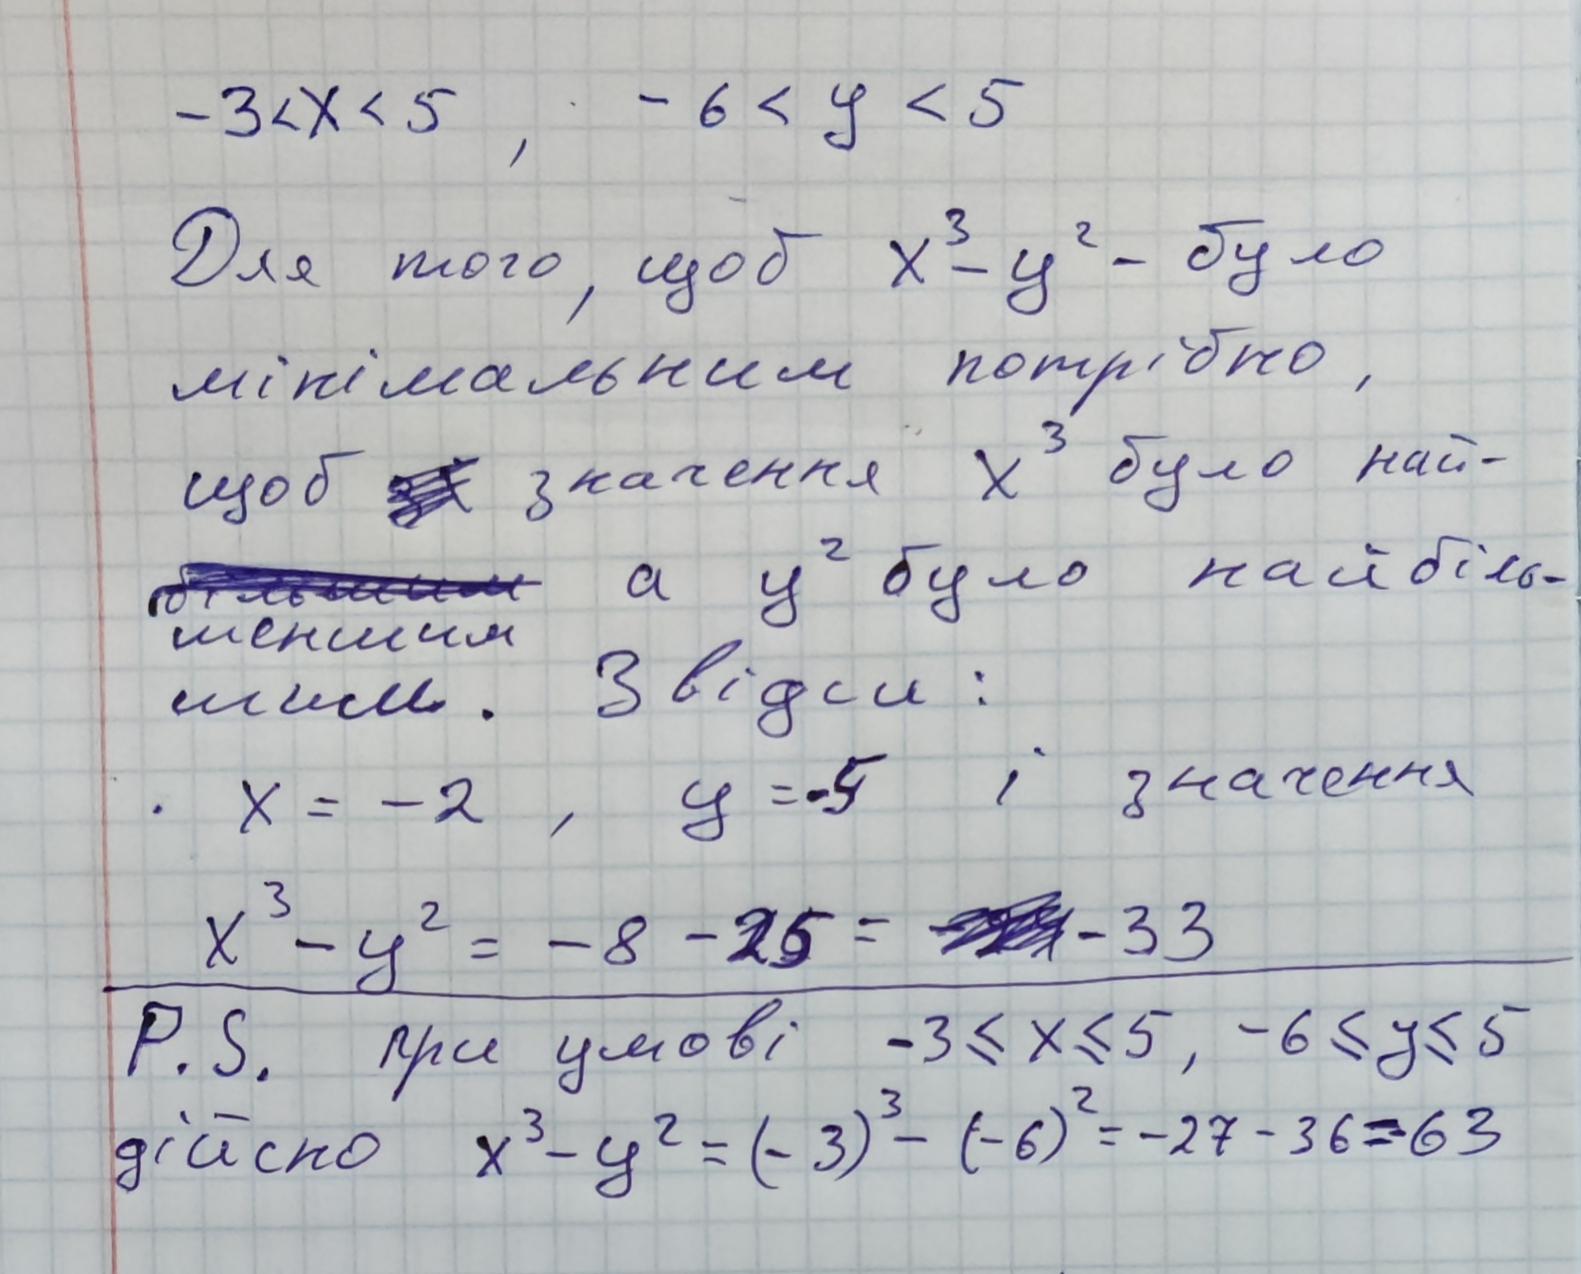 -3<x<5, -6<y<5
Для того, щоб x³-y²- було
мінімальним потрібно,
щоб значення x³ було най-
більшим а y² було найбіль-
меншим
шим. Звідси:
x = -2, y =-5 і значення
x³-y² = -8 -25 = -33
P.S. при умові -3≤x≤5, -6≤y≤5
дійсно x³-y²=(-3)³-(-6)²=-27-36=-63